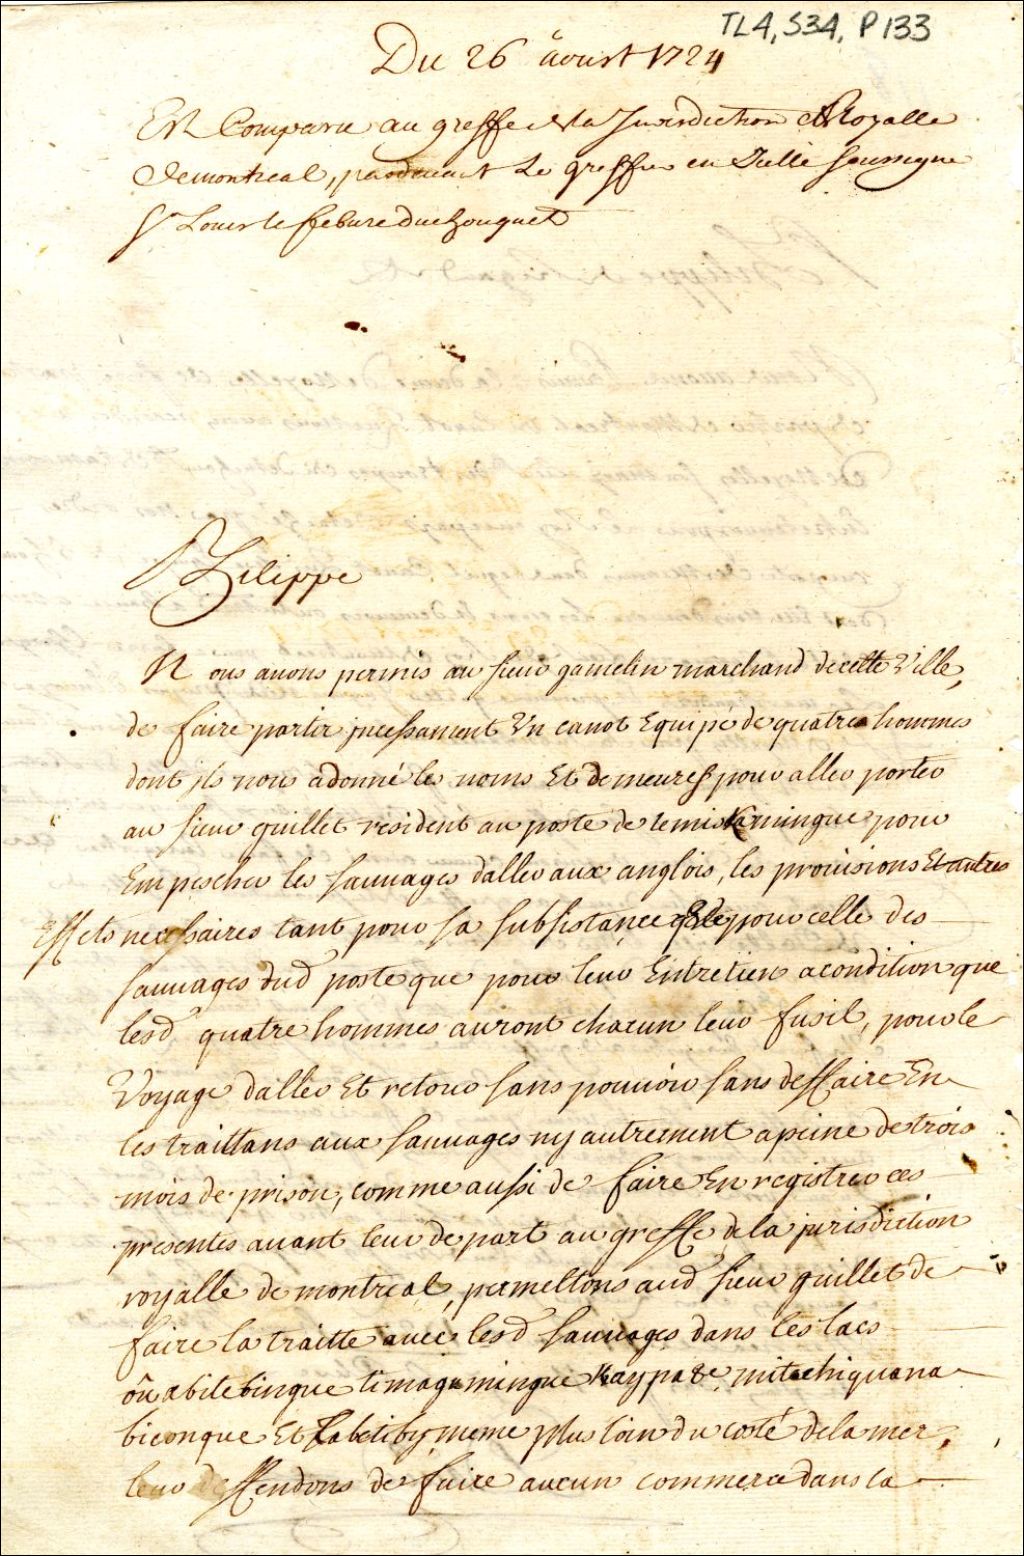 TL4, S34, P133
Du 26 aoust 1724
Est Comparu au greffe de la Jurisdiction Royalle
de montreal, pardevant Le greffier en Icelle soussigne
Sr Louis le febure duchouquet
Philippe
Nous auons permis au sieur gamelin marchand de cette Ville,
de faire partir incessament Un canot Equipé de quatre hommes
dont jls nous a donné les noms Et demeures pour aller porter
au sieur guillet resident au poste de temiskamingue pour
Empescher les sauuages daller aux anglois, les prouisions Et autres
Effets necessaires tant pour sa subsistance pour celle des
sauuages dud poste que pour leur Entretien a condition que
lesd quatre hommes auront chacun leur fusil, pour le
Voyage daller Et retour sans pouuoir sans deffaire En
les traittans aux sauuages ny autrement a peine de trois
mois de prison, comme aussi de faire Enregistrer ces
presentes auant leur depart au greffe de la jurisdiction
royalle de montreal, permettons aud sieur guillet de
faire la traitte auec lesd sauuages dans les lacs
oû abitebingue timagamingue Kaypa8e, mitachiquana
biconque Et Labitiby, meme plus loin du costé de la mer,
leur deffendons de faire aucun commerce dans la